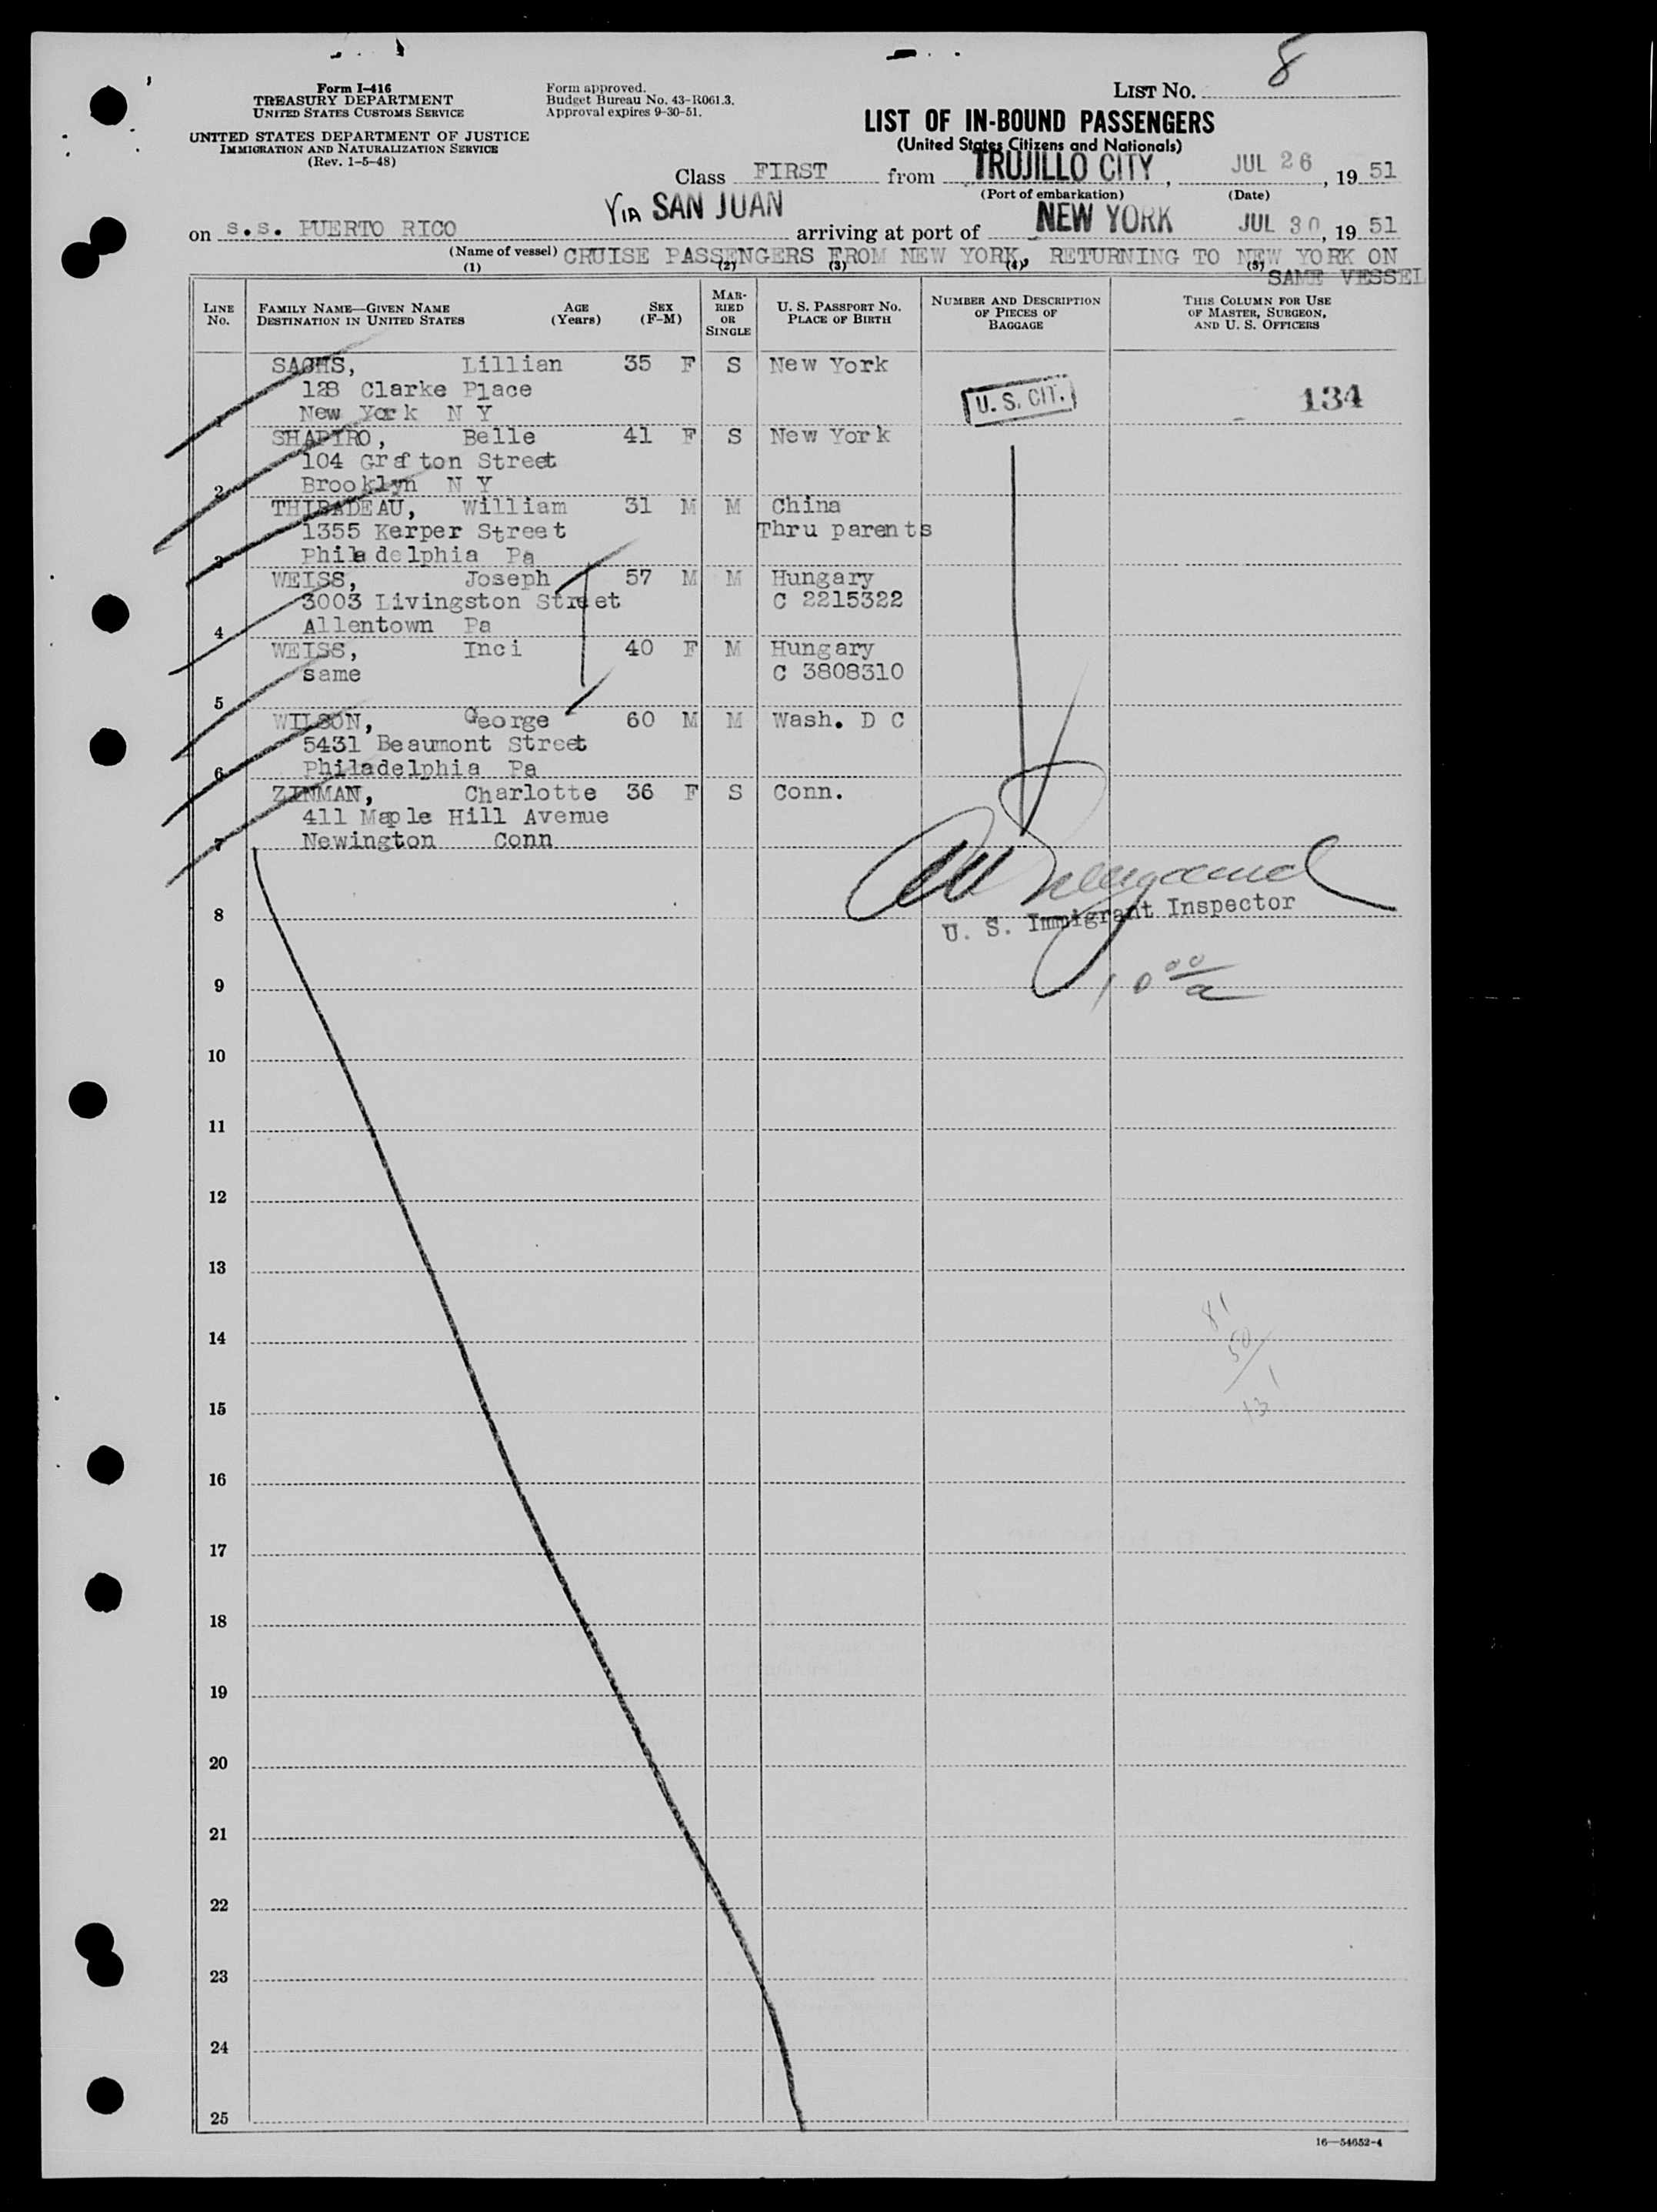 8
Form I-416
TREASURY DEPARTMENT
UNITED STATES CUSTOMS SERVICE
UNITED STATES DEPARTMENT OF JUSTICE
IMMIGRATION AND NATURALIZATION SERVICE
(Rev. 1-5-48)
Form approved.
Budget Bureau No. 43-R061.3.
Approval expires 9-30-51.
LIST NO.
LIST OF IN-BOUND PASSENGERS
(United States Citizens and Nationals)
Class FIRST from TRUJILLO CITY, JUL 26, 19 51
(Port of embarkation) (Date)
on s.s. PUERTO RICO VIA SAN JUAN arriving at port of NEW YORK JUL 30, 19 51
(Name of vessel) CRUISE PASSENGERS FROM NEW YORK, RETURNING TO NEW YORK ON
SAME VESSEL
(1) (2) (3) (4) (5)
LINE No. FAMILY NAME—GIVEN NAME DESTINATION IN UNITED STATES AGE (Years) SEX (F-M) MARRIED OR SINGLE U. S. PASSPORT NO. PLACE OF BIRTH NUMBER AND DESCRIPTION OF PIECES OF BAGGAGE THIS COLUMN FOR USE OF MASTER, SURGEON, AND U. S. OFFICERS
SACHS, Lillian 35 F S New York
128 Clarke Place U. S. CIT. 134
1 New York N Y
SHAPIRO, Belle 41 F S New York
104 Grafton Street
2 Brooklyn N Y
THIBADEAU, William 31 M M China
1355 Kerper Street Thru parents
3 Philadelphia Pa
WEISS, Joseph 57 M M Hungary
3003 Livingston Street C 2215322
4 Allentown Pa
WEISS, Inci 40 F M Hungary
same C 3808310
5
WILSON, George 60 M M Wash. D C
5431 Beaumont Street
6 Philadelphia Pa
ZINMAN, Charlotte 36 F S Conn.
411 Maple Hill Avenue
7 Newington Conn
8
U. S. Immigrant Inspector
9
10 00/a
10
11
12
13
81
14
50
15
131
16
17
18
19
20
21
22
23
24
25
16—54652-4